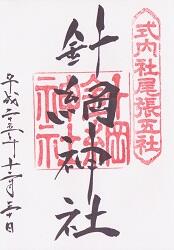 式内社尾張五社
針綱神社
針綱神社
平成二十五年十二月三十日